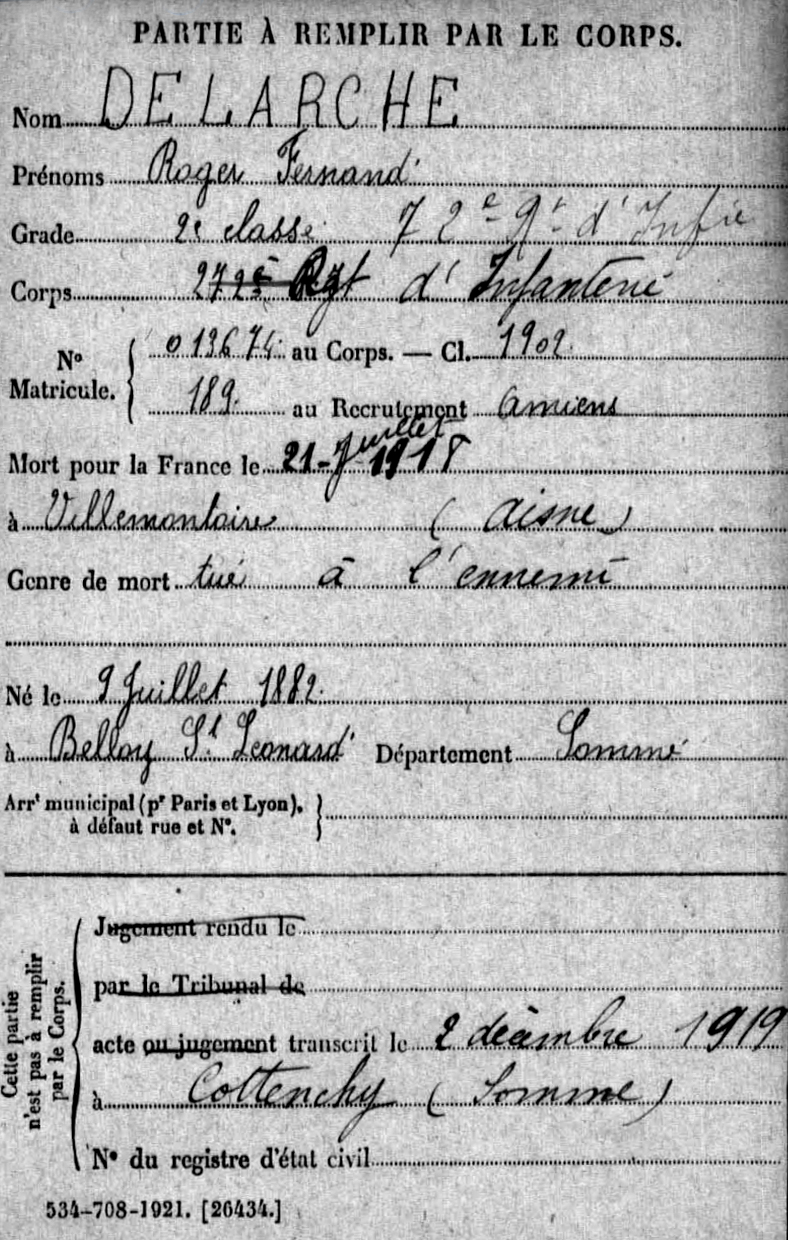 PARTIE À REMPLIR PAR LE CORPS.
Nom DELARCHE
Prénoms Roger Fernand
Grade 2e classe 72e Rt d'Infie
Corps 272e Rgt d'Infanterie
No Matricule. { 013674 au Corps. — Cl. 1902
189. au Recrutement Amiens
Mort pour la France le 21 - Juillet 1918
à Villemontoire (Aisne)
Genre de mort tué à l'ennemi
Né le 9 Juillet 1882
à Belloy St Leonard Département Somme
Arrt municipal (pr Paris et Lyon),
à défaut rue et No.
Cette partie n'est pas à remplir par le Corps.
Jugement rendu le
par le Tribunal de
acte ou jugement transcrit le 2 décembre 1919
à Cottenchy (Somme)
No du registre d'état civil
534-708-1921. [26434.]